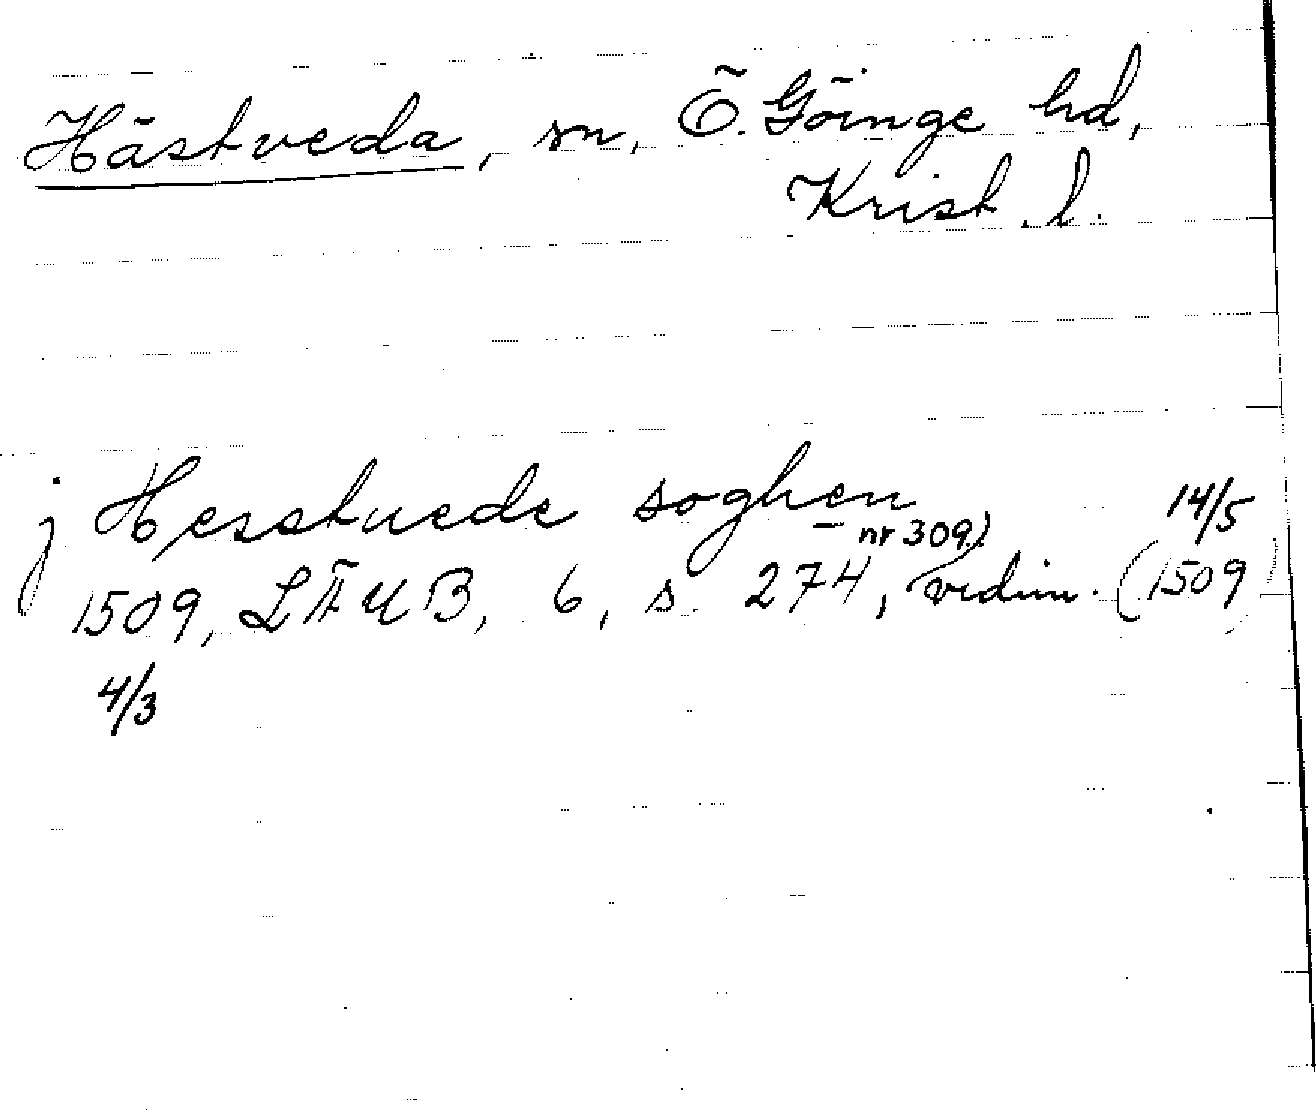 Hästveda, sn, Ö. Göinge hd,
Krist. l.
j Hesstuede soghen
14/5
nr 309)
1509, LÄUB, 6, s. 274, vidim. (1509)
4/3